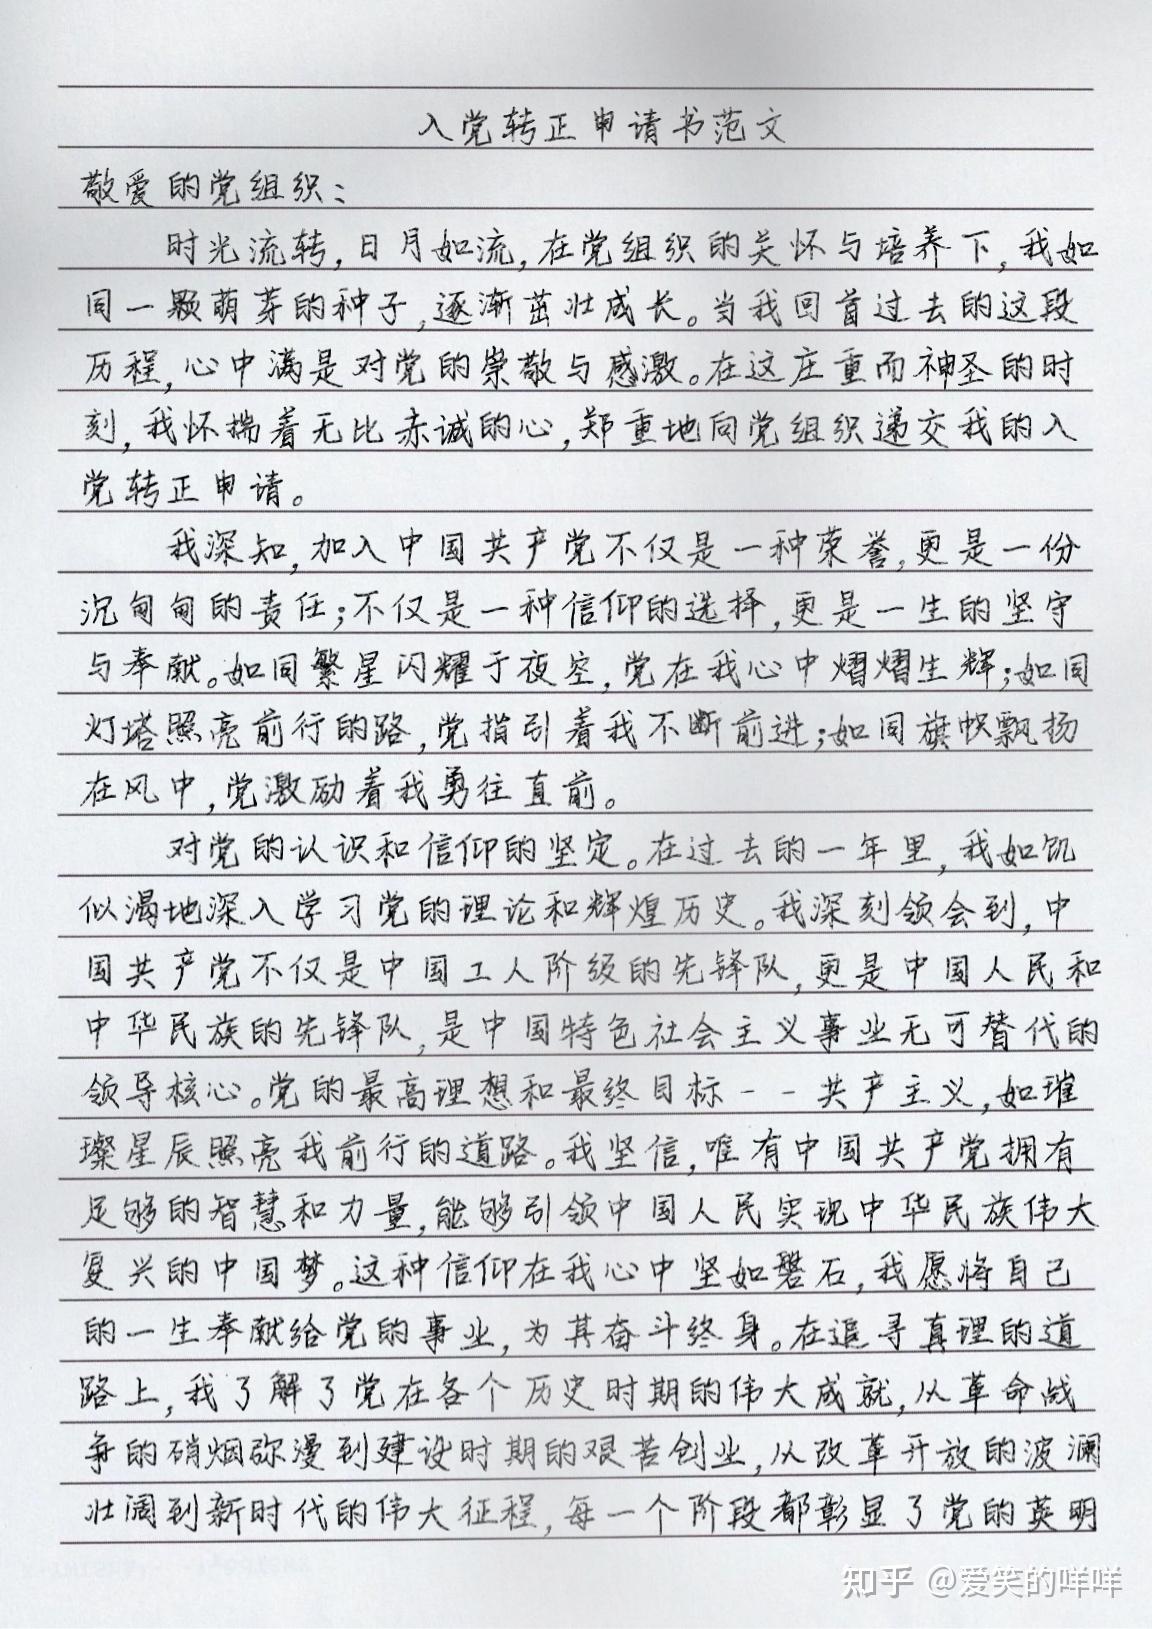 入党转正申请书范文
敬爱的党组织:
时光流转,日月如流,在党组织的关怀与培养下,我如
同一颗萌芽的种子,逐渐茁壮成长。当我回首过去的这段
历程,心中满是对党的崇敬与感激。在这庄重而神圣的时
刻,我怀揣着无比赤诚的心,郑重地向党组织递交我的入
党转正申请。
我深知,加入中国共产党不仅是一种荣誉,更是一份
沉甸甸的责任;不仅是一种信仰的选择,更是一生的坚守
与奉献。如同繁星闪耀于夜空,党在我心中熠熠生辉;如同
灯塔照亮前行的路,党指引着我不断前进;如同旗帜飘扬
在风中,党激励着我勇往直前。
对党的认识和信仰的坚定。在过去的一年里,我如饥
似渴地深入学习党的理论和辉煌历史。我深刻领会到,中
国共产党不仅是中国工人阶级的先锋队,更是中国人民和
中华民族的先锋队,是中国特色社会主义事业无可替代的
领导核心。党的最高理想和最终目标--共产主义,如璀
璨星辰照亮我前行的道路。我坚信,唯有中国共产党拥有
足够的智慧和力量,能够引领中国人民实现中华民族伟大
复兴的中国梦。这种信仰在我心中坚如磐石,我愿将自己
的一生奉献给党的事业,为其奋斗终身。在追寻真理的道
路上,我了解了党在各个历史时期的伟大成就,从革命战
争的硝烟弥漫到建设时期的艰苦创业,从改革开放的波澜
壮阔到新时代的伟大征程,每一个阶段都彰显了党的英明
知乎 @爱笑的咩咩